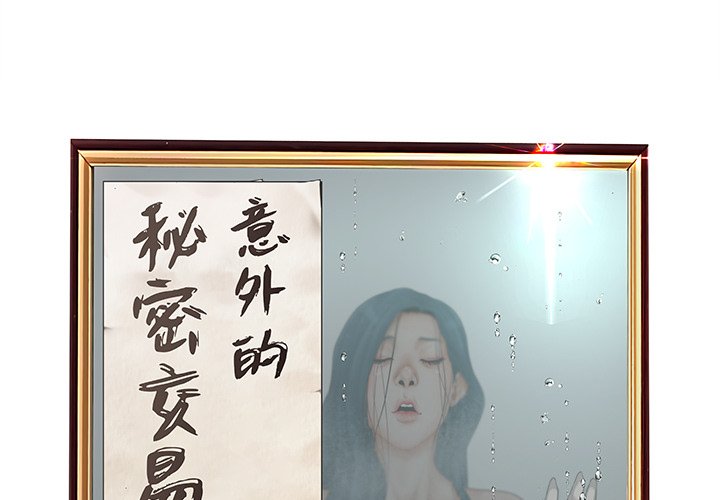 意外的
秘密交易